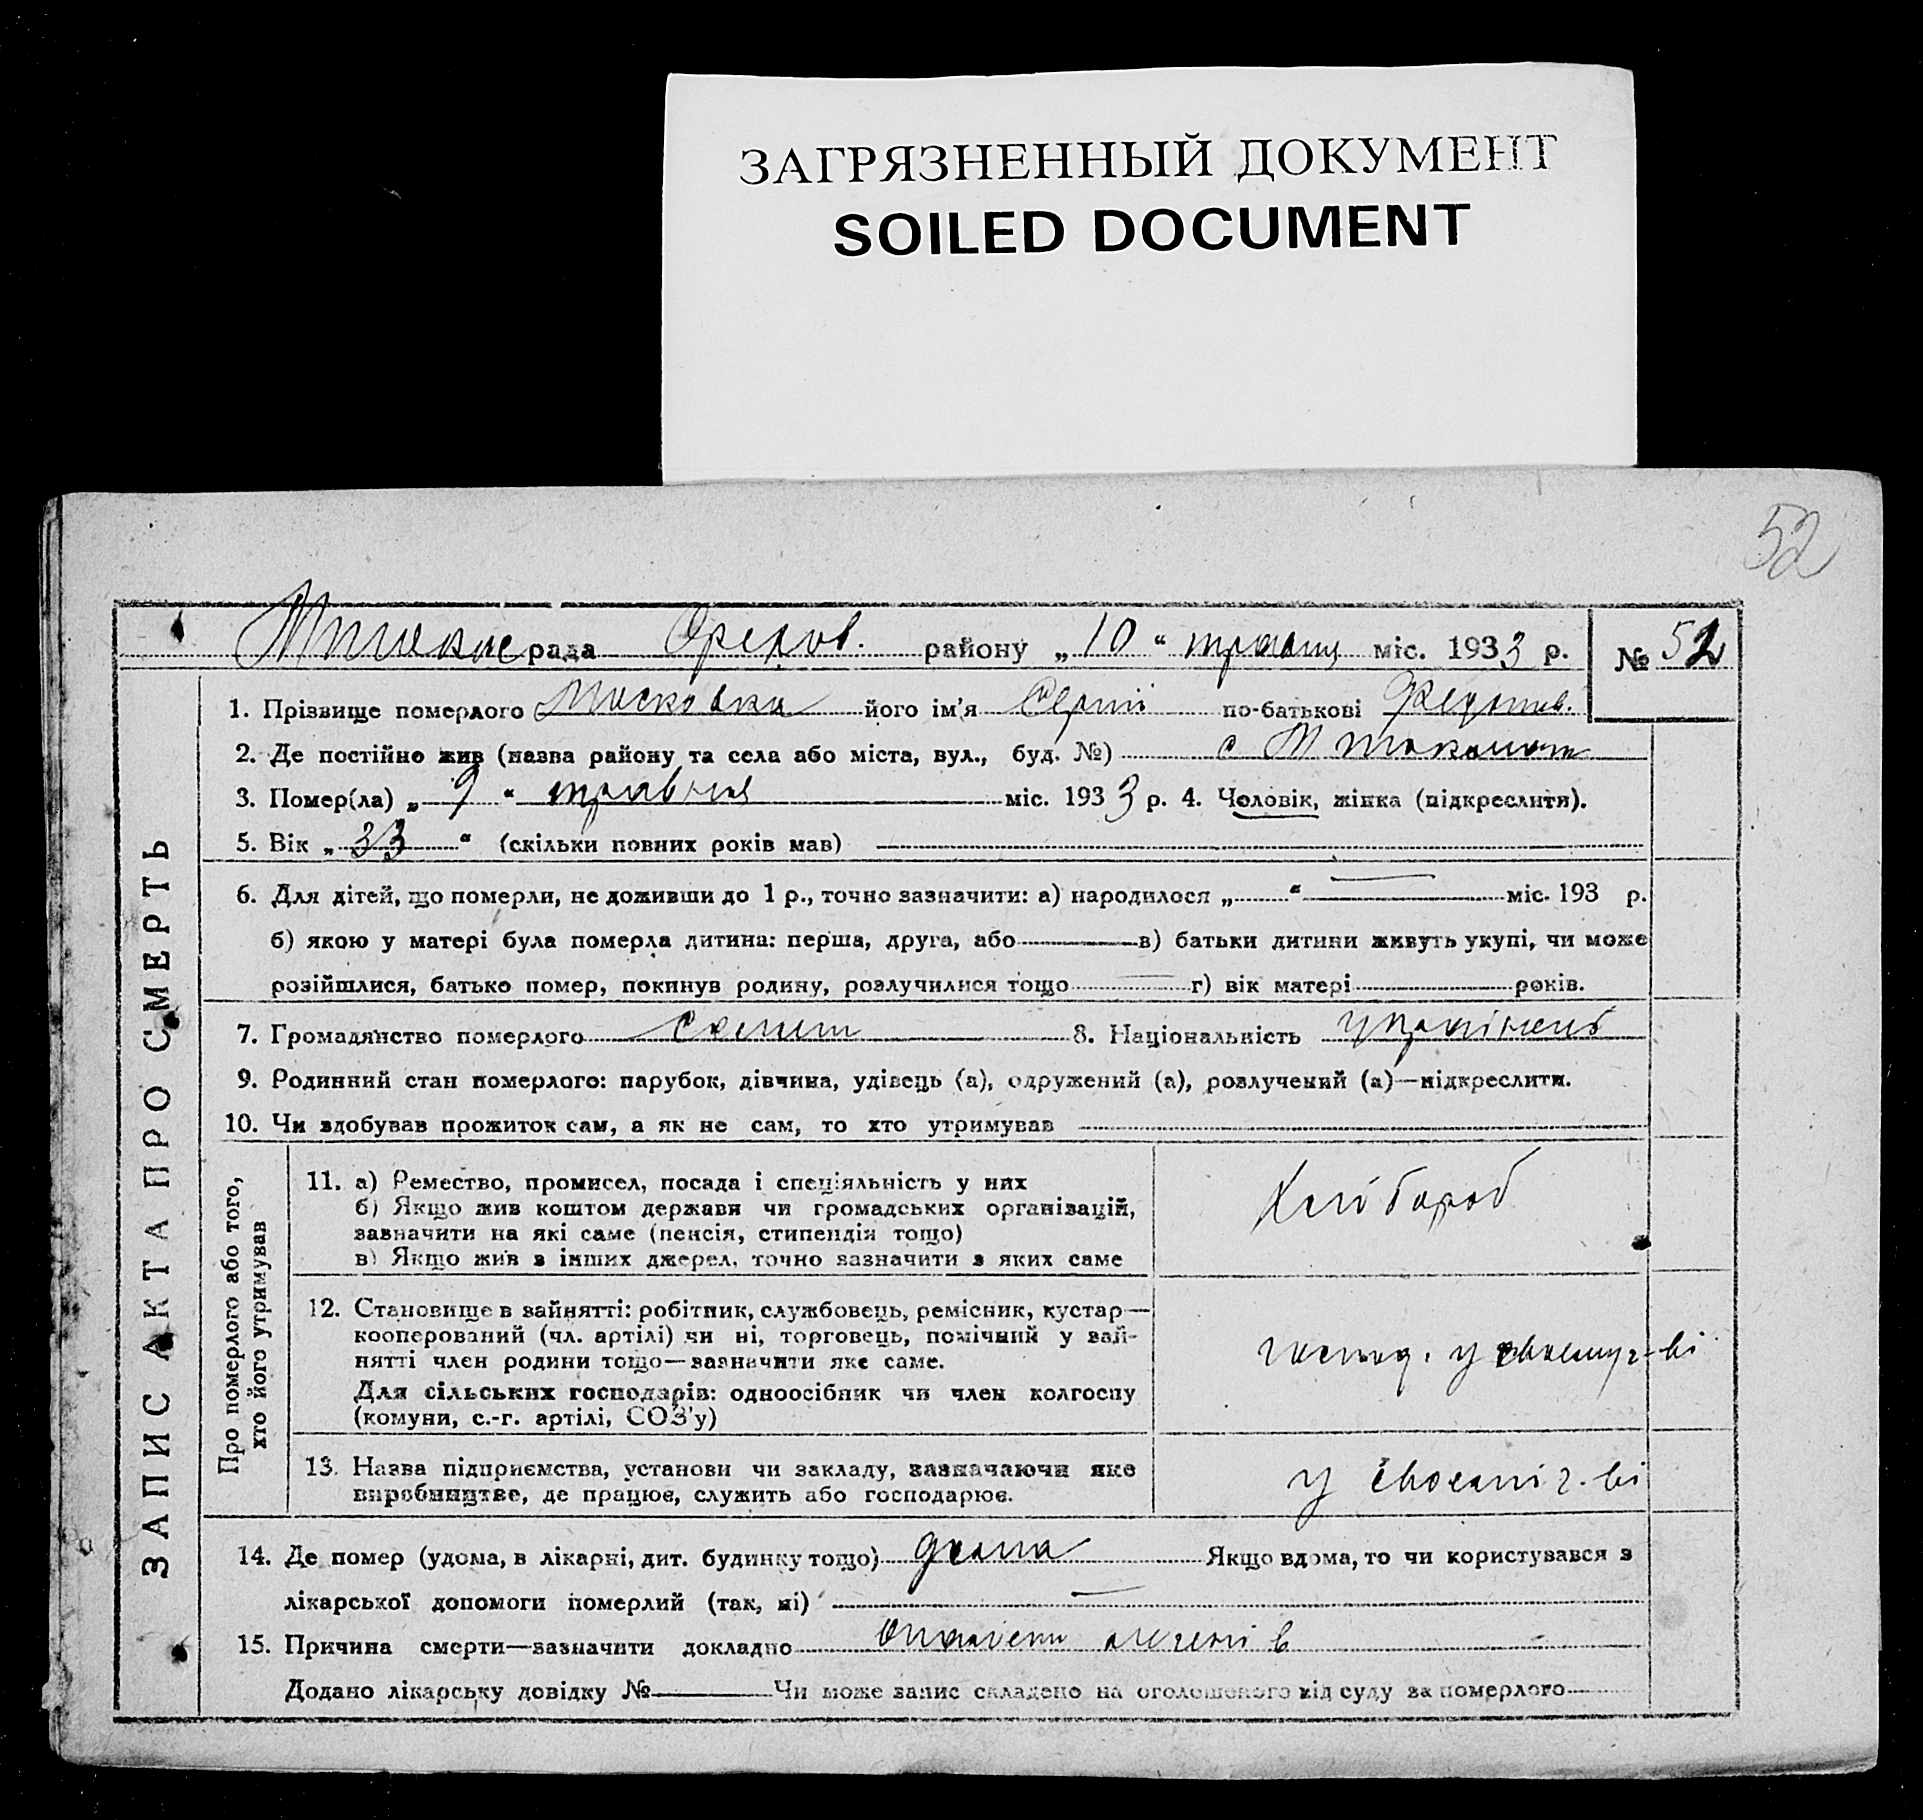 ЗАГРЯЗНЕННЫЙ ДОКУМЕНТ
SOILED DOCUMENT
52
рада Орехов. району „10“ травня міс. 1933 р. № 52
1. Прізвище померлого Московка його ім'я Сергій по-батькові Федотов.
2. Де постійно жив (назва району та села або міста, вул., буд. №) с
3. Помер(ла) „9“ травня міс. 1933 р. 4. Чоловік, жінка (підкреслити).
5. Вік „33“ (скільки повних років мав)
6. Для дітей, що померли, не доживши до 1 р., точно зазначити: а) народилося „ “ міс. 193 р.
б) якою у матері була померла дитина: перша, друга, або в) батьки дитини живуть укупі, чи може
розійшлися, батько помер, покинув родину, розлучилися тощо г) вік матері років.
7. Громадянство померлого 8. Національність українець
9. Родинний стан померлого: парубок, дівчина, удівець (а), одружений (а), розлучений (а)—підкреслити.
10. Чи здобував прожиток сам, а як не сам, то хто утримував
ЗАПИС АКТА ПРО СМЕРТЬ
Про померлого або того,
хто його утримував
11. а) Ремество, промисел, посада і спеціяльність у них
б) Якщо жив коштом держави чи громадських організацій,
зазначити на які саме (пенсія, стипендія тощо)
в) Якщо жив з інших джерел, точно зазначити з яких саме
Хлібороб
12. Становище в зайнятті: робітник, службовець, ремісник, кустар—
кооперований (чл. артілі) чи ні, торговець, помічний у зай-
нятті член родини тощо—зазначити яке саме.
Для сільських господарів: одноосібник чи член колгоспу
(комуни, с.-г. артілі, СОЗ'у)
господ. у своєму г-ві
13. Назва підприємства, установи чи закладу, зазначаючи яке
виробництве, де працює, служить або господарює.
у своєм г-ві
14. Де помер (удома, в лікарні, дит. будинку тощо) дома Якщо вдома, то чи користувався з
лікарської допомоги померлий (так, ні)
15. Причина смерти—зазначити докладно
Додано лікарську довідку № Чи може запис складено на оголошеного від суду за померлого